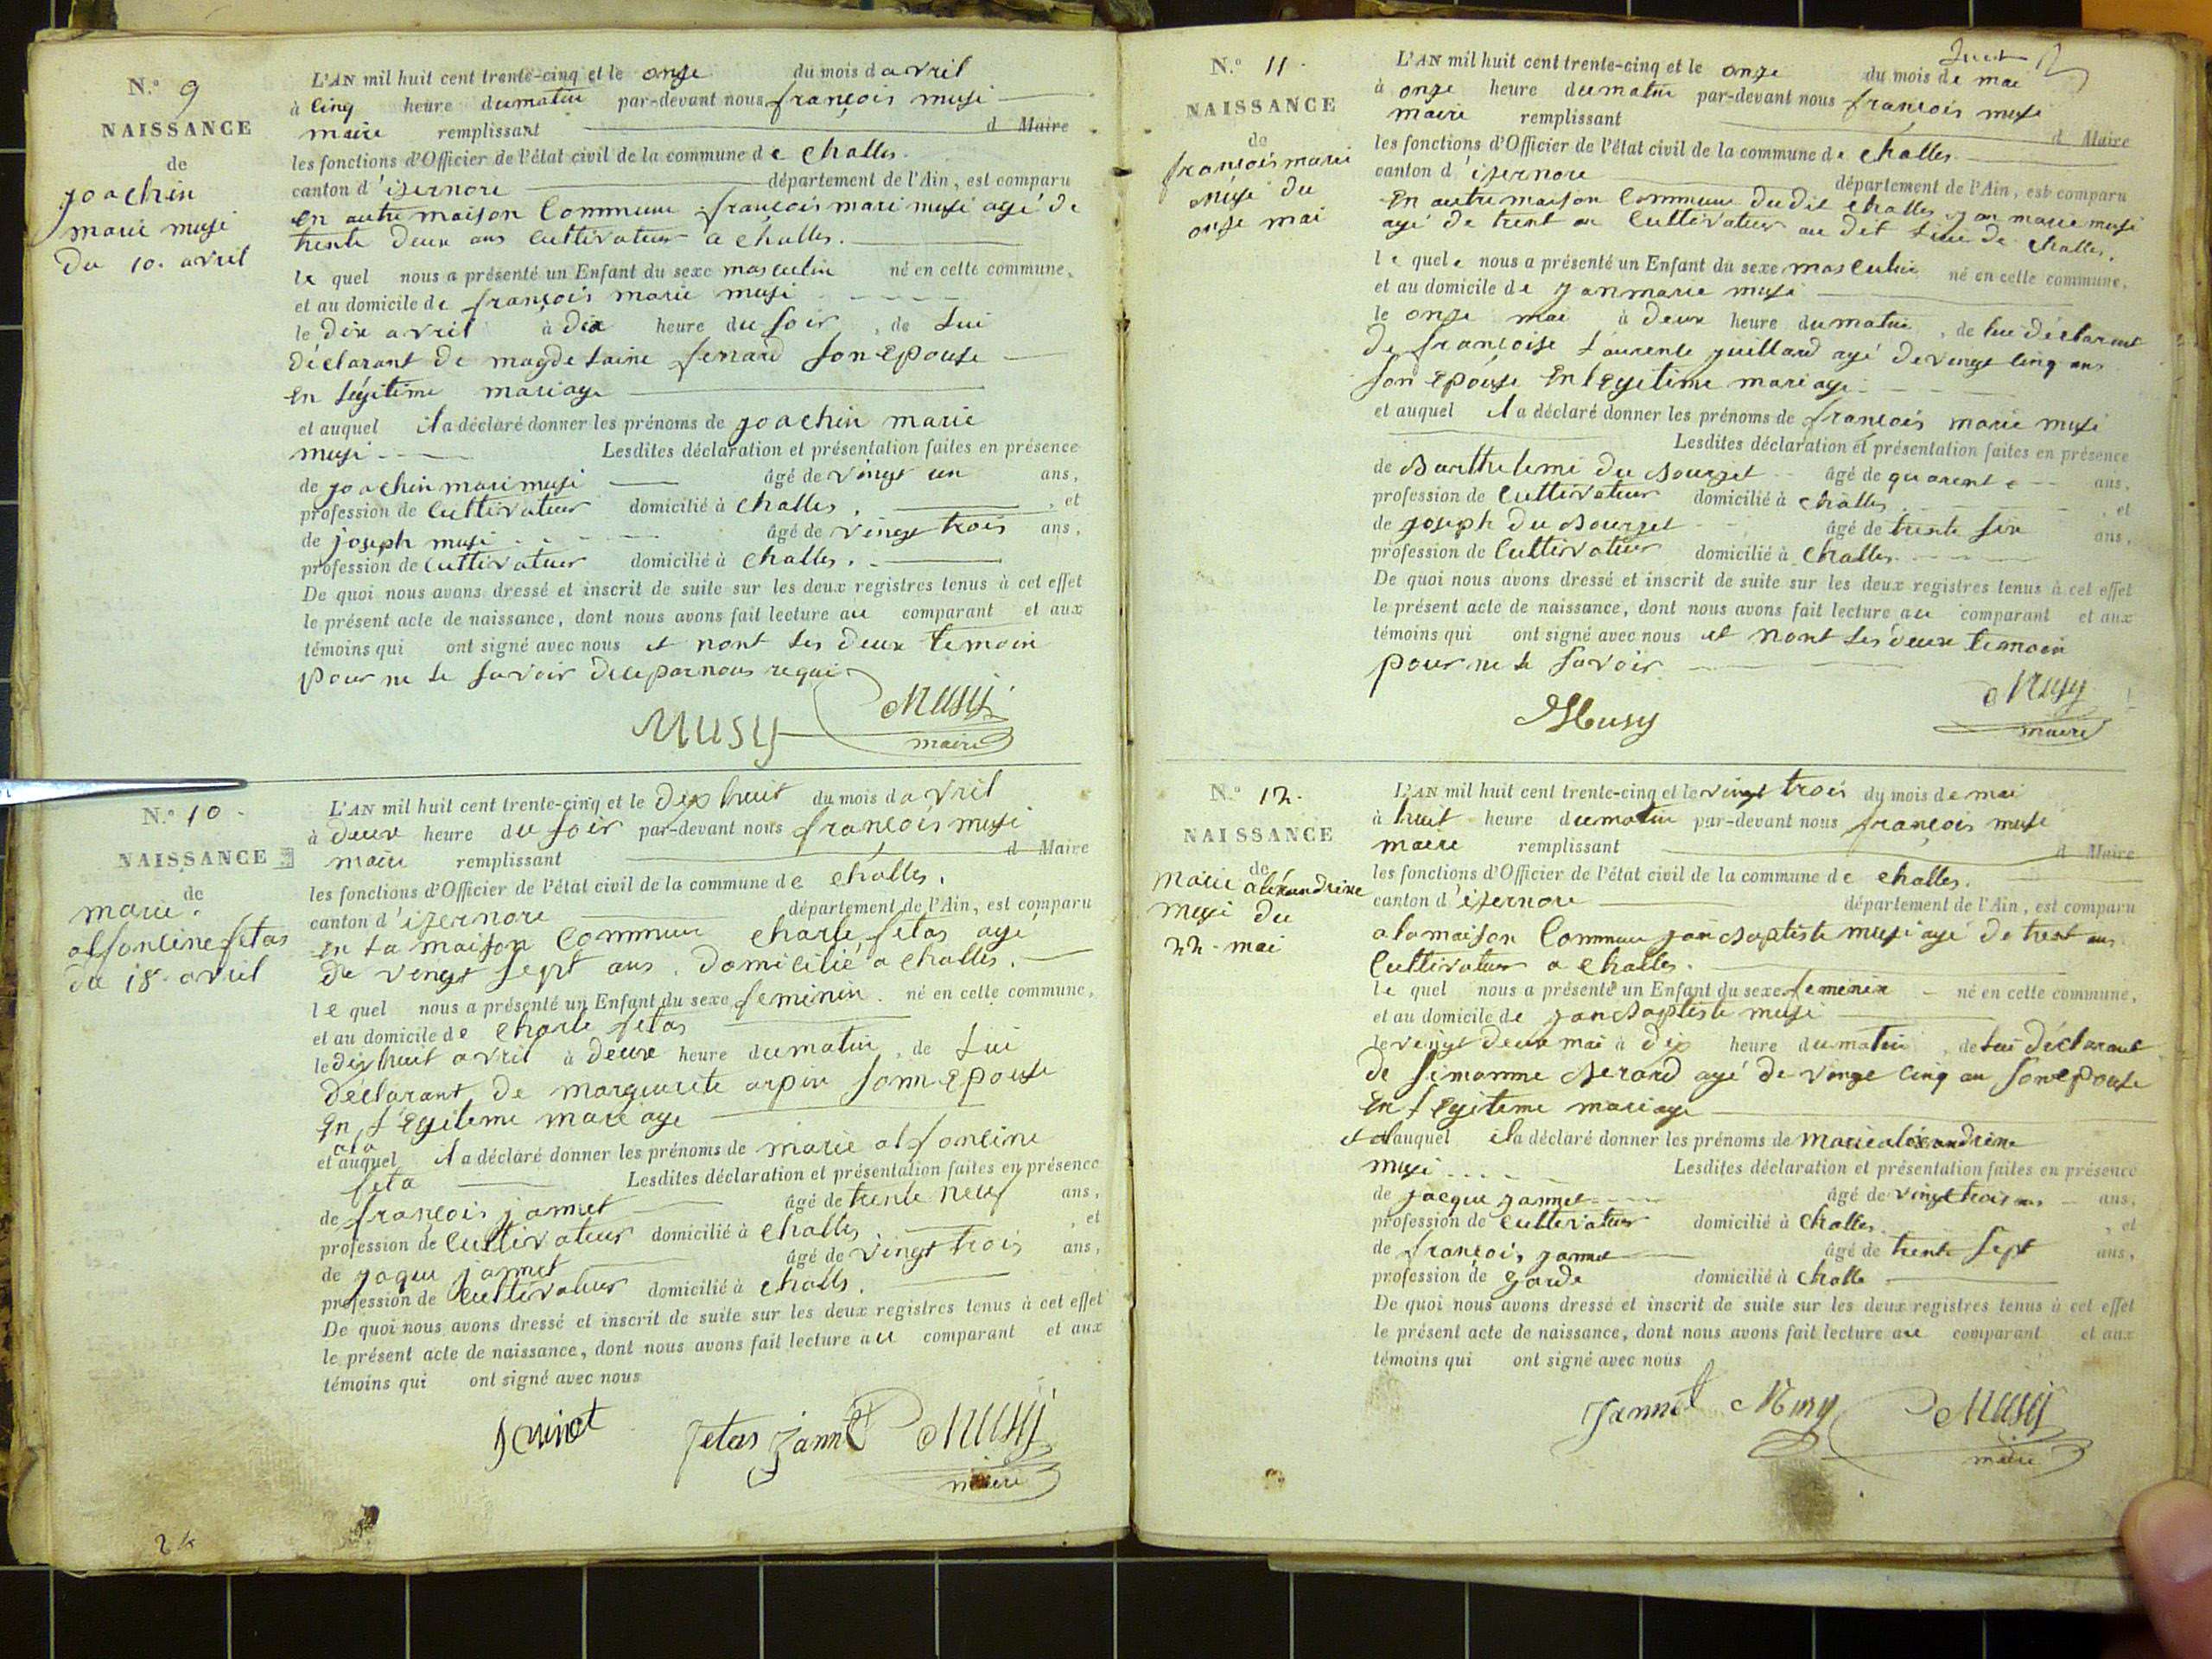 N.° 9
NAISSANCE
de
joachin
marie musi
du 10. avril
L'AN mil huit cent trente-cinq et le onze du mois d avril
à cinq heure du matin par-devant nous françois musi
maire remplissant d Maire
les fonctions d'Officier de l'état civil de la commune d e challes.
canton d'izernore département de l'Ain, est comparu
en autre maison commune françois mari musi agé de
trente deux ans cultivateur a challes.
le quel nous a présenté un Enfant du sexe masculin né en cette commune,
et au domicile de françois marie musi
le dix avril à dix heure du soir , de lui
déclarant de magdelaine fenard son epouse
en légitime mariage
et auquel il a déclaré donner les prénoms de joachin marie
musi Lesdites déclaration et présentation faites en présence
de joachin mari musi âgé de vingt un ans,
profession de cultivateur domicilié à challes , et
de joseph musi âgé de vingt trois ans,
profession de cultivateur domicilié à challes.
De quoi nous avons dressé et inscrit de suite sur les deux registres tenus à cet effet
le présent acte de naissance, dont nous avons fait lecture au comparant et aux
témoins qui ont signé avec nous et nont les deux temoin
pour ne le savoir de ce par nous requi
Musy Musy
maire
N.° 10
NAISSANCE
de
marie
alfonsine fetas
du 18. avril
L'AN mil huit cent trente-cinq et le dix huit du mois d avril
à deux heure du soir par-devant nous françois musi
maire remplissant d Maire
les fonctions d'Officier de l'état civil de la commune de challes.
canton d'izernore département de l'Ain, est comparu
en la maison commun charle fetas agé
de vingt sept ans. domicilié a challes.
le quel nous a présenté un Enfant du sexe feminin né en cette commune,
et au domicile de charle fetas
le dix huit avril à deux heure du matin , de lui
déclarant de marguerite arpin sonn epouse
en légitime mariage
a la
et auquel il a déclaré donner les prénoms de marie alfonsine
feta Lesdites déclaration et présentation faites en présence
de françois jannet âgé de trente neuf ans,
profession de cultivateur domicilié à challes , et
de jaque jannet âgé de vingt trois ans,
profession de cultivateur domicilié à challs.
De quoi nous avons dressé et inscrit de suite sur les deux registres tenus à cet effet
le présent acte de naissance, dont nous avons fait lecture au comparant et aux
témoins qui ont signé avec nous
fetas Jannet Musy
maire
N.° 11
NAISSANCE
de
françois marie
musi du
onse mai
L'AN mil huit cent trente-cinq et le onze du mois de mai
à onze heure du matin par-devant nous françois musi
maire remplissant d Maire
les fonctions d'Officier de l'état civil de la commune de challes
canton d'izernore département de l'Ain, est comparu
en autre maison commune du dit challes jan marie musi
agé de trent an cultivateur au dit lieu de challes.
le quele nous a présenté un Enfant du sexe masculin né en cette commune,
et au domicile de jan marie musi
le onze mai à deux heure du matin , de lui déclarant
de françoise laurence juillard agé de vingt cinq ans
son epouse en legitime mariage
et auquel il a déclaré donner les prénoms de françois marie musi
Lesdites déclaration et présentation faites en présence
de Barthelemi du Bourget âgé de quarente ans,
profession de cultivateur domicilié à challes , et
de joseph du Bourget âgé de trente six ans,
profession de cultivateur domicilié à challes
De quoi nous avons dressé et inscrit de suite sur les deux registres tenus à cet effet
le présent acte de naissance, dont nous avons fait lecture au comparant et aux
témoins qui ont signé avec nous et nont les deux temoin
pour ne le savoir
Musy Musy
maire
N.° 12.
NAISSANCE
de
marie alexandrine
musi du
22 mai
L'AN mil huit cent trente-cinq et le vingt trois du mois de mai
à huit heure du matin par-devant nous françois musi
maire remplissant d Maire
les fonctions d'Officier de l'état civil de la commune de challes.
canton d'izernore département de l'Ain, est comparu
a la maison commun jan Baptiste musi agé de trent ans
cultivateur a challes.
le quel nous a présenté un Enfant du sexe feminin né en cette commune,
et au domicile de jan Baptiste musi
le vingt deux mai à dix heure du matin , de lui déclarant
de simonne Berard agé de vingt cinq an son epouse
en legiteme mariage
et auquel il a déclaré donner les prénoms de marie alexandrine
musi Lesdites déclaration et présentation faites en présence
de jacque jannet âgé de vingt trois ans ans,
profession de cultivateur domicilié à challes , et
de françois jannet âgé de trente sept ans,
profession de garde domicilié à challe
De quoi nous avons dressé et inscrit de suite sur les deux registres tenus à cet effet
le présent acte de naissance, dont nous avons fait lecture au comparant et aux
témoins qui ont signé avec nous
Jannet Musy Musy
maire